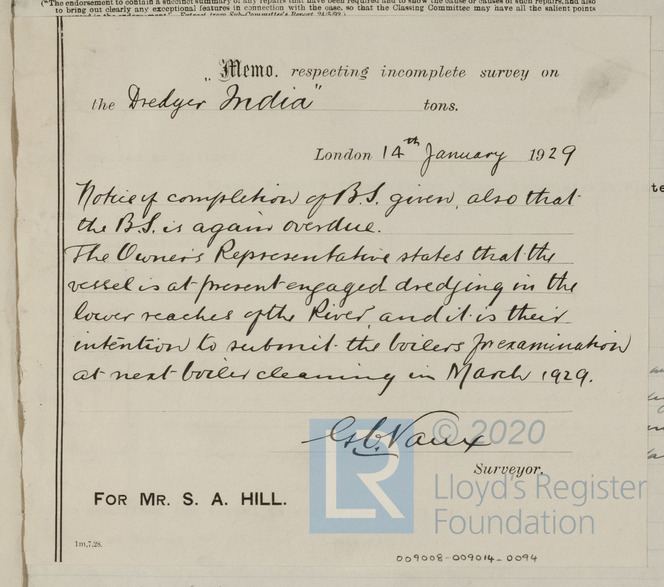 ("The endorsement to contain a succinct summary of any repairs that have been required and to show the cause or causes of such repairs, and also
to bring out clearly any exceptional features in connection with the case, so that the Classing Committee may have all the salient points
Extract from Sub-Committee's Report
Memo. respecting incomplete survey on
the Dredger "India" tons.
London 14th January 1929
Notice of completion of B.S. given, also that
the B.S. is again overdue.
The Owner's Representative states that the
vessel is at present engaged dredging in the
lower reaches of the River, and it is their
intention to submit the boilers for examination
at next boiler cleaning in March 1929.
Vaux
Surveyor.
FOR MR. S. A. HILL.
1m,7,28.
© 2020
LR
Lloyd's Register
Foundation
009008-009014-0094